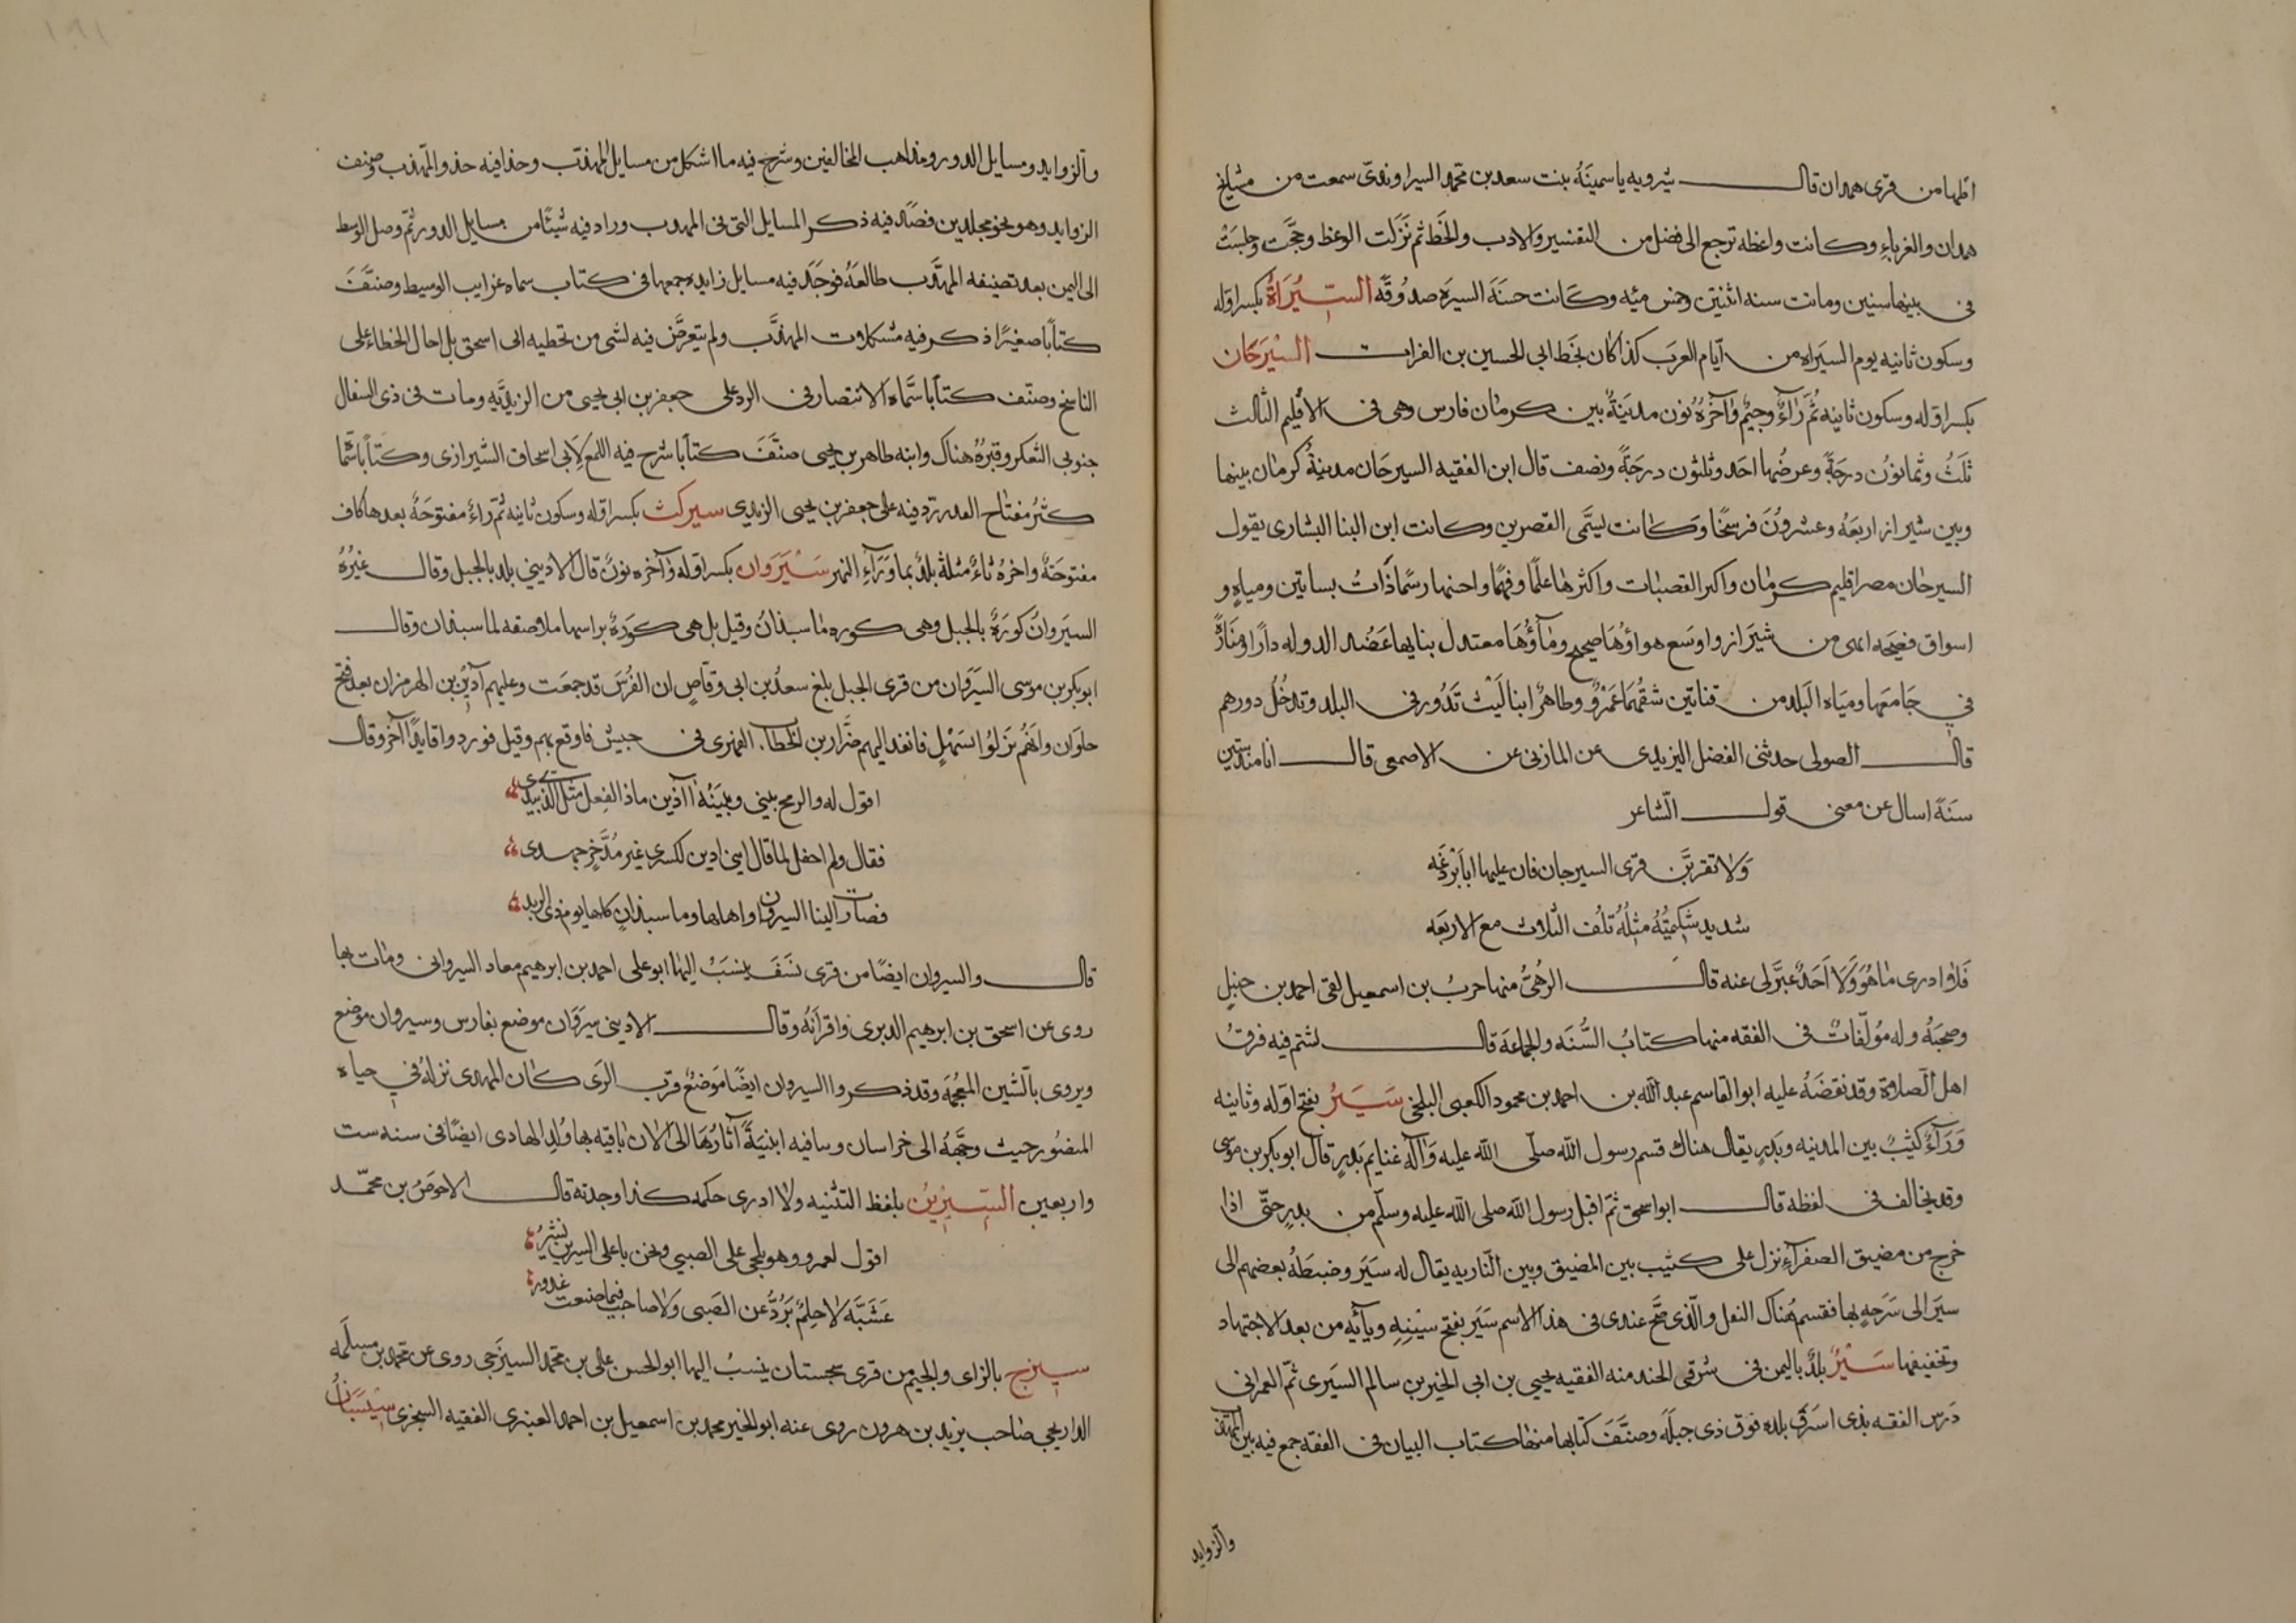 اظنها من قرى همدان قال شيرويه ياسمينَهُ بنت سعد بن محمد السيراوندىّ سمعت من مشايخ
همدان والغرباءِ وكانت واعظه ترجع الى فضل من التفسير والادب والخَط ثم نَزَلت الوعظ وحجَّت وجلسَتْ
فى بيتها سنين وماتت سنه اثنتين وخمس مئه وكَانت حسنَة السيرَه صدُوقَه السِّيْرَاةُ بكسر اوّله
وسكون ثانيه يوم السيَراه من آيام العرَب كذا كان بخَط ابى الحسين بن الفرات السّيْرجَان
بكسر اوّله وسكون ثانيه ثُمَّ رَاءٌ وجيمٌ وٰآخرُهُ نون مدينَةٌ بين كرمٰان فارس وهى فى الاقليم الثالث
ثلَثُ وثمانوُن درجَةً وعرضُها احَد وثلثون درجَةً ونصف قال ابن الفقيه السيرجَان مدينةُ كرمٰان بينها
وبين شيراز اربعَهُ وعشروُنَ فرسخًا وكانت يسَّمى القصرين وكانت ابن البنا البشارى يقول
السيرجٰان مصر اقليم كرمٰان واكبر القصبٰات واكثرهٰا علمًا وفهمًا واحسنها رسمًا ذاتُ بساتين ومياهٍ و
اسواق فسِيحَه ابهى من شيَراز واوسَع هواؤهَا صحيح ومٰآؤُهَا معتدل بنا بها عَضُد الدوله دارًا ومنَارةً
فى جَامعَها وميَاه البَلد من قناتين شقهُمَا عَمْرٌو وطاهرٌ ابنا لَيْث تَدُور فى البلد وتدخُلُ دورهم
قال الصولى حدثنى الفضل اليزيدى عن المازنى عن الاصمعى قال انا منذ ستين
سنَةً اسال عن معنى قول الشاعر
وَلا تقربَّن قرَى السيرجان فان عليها ابَا بَرْدعَه
شديد شكيمَتُهُ مثلُهُ تلُف الثلاث مع الاربعَه
فَلا ادرى مٰا هُوَ وَلَا اَحَدٌ عبَّر لى عنه قال الرُهْنىُّ منها حربُ بن اسمعيل لقى احمد بن حنبلٍ
وصحبَهُ وله مؤلّفاتٌ فى الفقه منها كتابُ السُّنَه والجماعَة قال لشتم فيه فرقُ
اهل الصّلاة وقد نقضَهُ عليه ابو القاسم عبد الله بن احمد بن محمود الكعبى البلخى سَيَرُ بفتح اوّله وثانيه
وَرَآءٌ كثيبٌ بين المدينه وبَدرٍ يقال هناك قسم رسول الله صلّى الله عليه وَآله غنايم بَدرٍ قال ابو بكر بن موسى
وقد يخالف فى لفظه قال ابو اسحق ثمّ اقبل رسول الله صلى الله عليه وسلّم من بدرٍ حتّى اذا
خرج من مضيق الصفرآءِ نزل على كثيب بين المضيق وبين النّاريه يقال له سيَر وضبطَهُ بعضهم الى
سيَر الى سَرَحةٍ بها فقسم هُناك النفل والّذى صَحَّ عندى فى هذا الاسم سَيَر بفتح سيْنِهِ ويآئه من بعد الاجتهاد
وتخفيفها سَيْرٌ بلدٌ باليمن فى شرقى الجند منه الفقيه يحيى بن ابى الخير بن سالم السيَرى ثمّ العمرانى
دَرس الفقه بذى اسرَق بلده فوق ذى جبلَه وصنَّفَ كتابها منها كتاب البيان فى الفقه جمع فيه بين المهذّب
والزوايد
والزوايد ومسايل الدور ومذاهب المخالفين وشرح فيه ما اشكل من مسايل المهذّب وحذا فيه حذو المهذب وصنف
الزوايد وهو نحو مجلدين قصَد فيه ذكر المسايل التى فى المهدب وزاد فيه شيئًا من مسايل الدور ثمّ وصل الوسيط
الى اليمن بعد تصنيفه المهذَّب طالعَهُ فوجَد فيه مسايل زايده جمعها فى كتاب سماه غرايب الوسيط وصنَّفَ
كتابًا صغيرًا ذكر فيه مشكلات المهذَّب ولم يتعرَّض فيه لشى من تخطيه ابى اسحق بل احال الخطاء على
الناسخ وصنّف كتابًا سمَّاه الانتصار فى الرد على جعفر بن ابى يحيى من الزيديَّه ومات فى ذى السفال
جنوبى التعكر وقبرُهُ هناك وابنه طاهر بن يحيى صنَّفَ كتابًا شرح فيه اللمع لأبى اسحاق الشيرازى وكتابًا سَمّا
كَسْرُ مفتاح القدر رَدّ فيه على جعفر بن يحيى الزيدى سيركث بكسر اوّله وسكون ثانيه ثمّ راءٌ مفتوحَهٌ بعدها كاف
مفتوحَةٌ واخرهُ ثاءٌ مثلثه بلدٌ بما وَرَآءِ النهر سَيْرَوَان بكسر اوّله وآخره نونٌ قال الاديبى بلد بالجبل وقال غيْرُهُ
السيَروانُ كورَةٌ بالجبل وهى كوره مٰاسبذان وقيل بل هى كورَةٌ براسها ملاصقه لماسبذان وقال
ابو بكر بن موسى السيَروَان من قرى الجبل بلغ سعدُ بن ابى وقاصٍ ان الفُرسَ قد جمعَت وعليهم آذينُ بن الهرمزان بعد فتح
حلوَان وانَهُم نزَلوُا بسَهْلٍ فانفذ اليهم ضرَّار بن الخطاب الفهرى فى جيش فاوقع بهم وقيل فورد واقايدًا آخر وقال
اقول له والرمح بينى وبينَهُ أآذين ماذا الفعل مثل الذى يبدى
فقال ولم احفل لما قال اننى ادين لكسرى غير مُدَّخرٍ جهدى
فصارت الينا السيروان واهلها وماسبذانٍ كلها يوم ذى الربد
قال والسيروان ايضًا من قرى نَسَفَ ينسَبُ اليها ابو على احمد بن ابرهيم معاد السيروانى ومٰات بها
روى عن اسحق بن ابرهيم الدبرى واقرانَهُ وقال الاديبى سيروَان موضع بفارس وسيروان موضع
ويروى بالشّين المعجمَه وقد ذكروا السيروان ايضًا مَوضعٌ قرب الرَى كان المهدى نزلهُ فى حياه
المنصُور حيث وجَّههُ الى خراسان وبنا فيه ابنيَةً آثارُهَا الى الان بٰاقيه بها وُلِد الهادى ايضًا فى سنه ست
واربعين السِّيرِيْنُ بلفظ التثنيه ولا ادرى حكمه كذا وجدته قال الاحوَصُ بن محمّد
اقول لعمرو وهو يلحى على الصبى ونحن باعلى السيرين نَسْيرُ
عَشيَّه لا حلمٌ يَرُدُّ عن الصَبى ولا صاحب فيما صنعت غدورُ
سيزج بالزاى والجيم من قرى سجستان ينسبُ اليها ابو الحسن على بن محمّد السيزَجى روى عن محمد بن مسلمَه
صاحب يزيد بن هرون روى عنه ابو الخير محمد بن اسمعيل بن احمد العنبرى الفقيه السجزى سِيْسَبَانُ